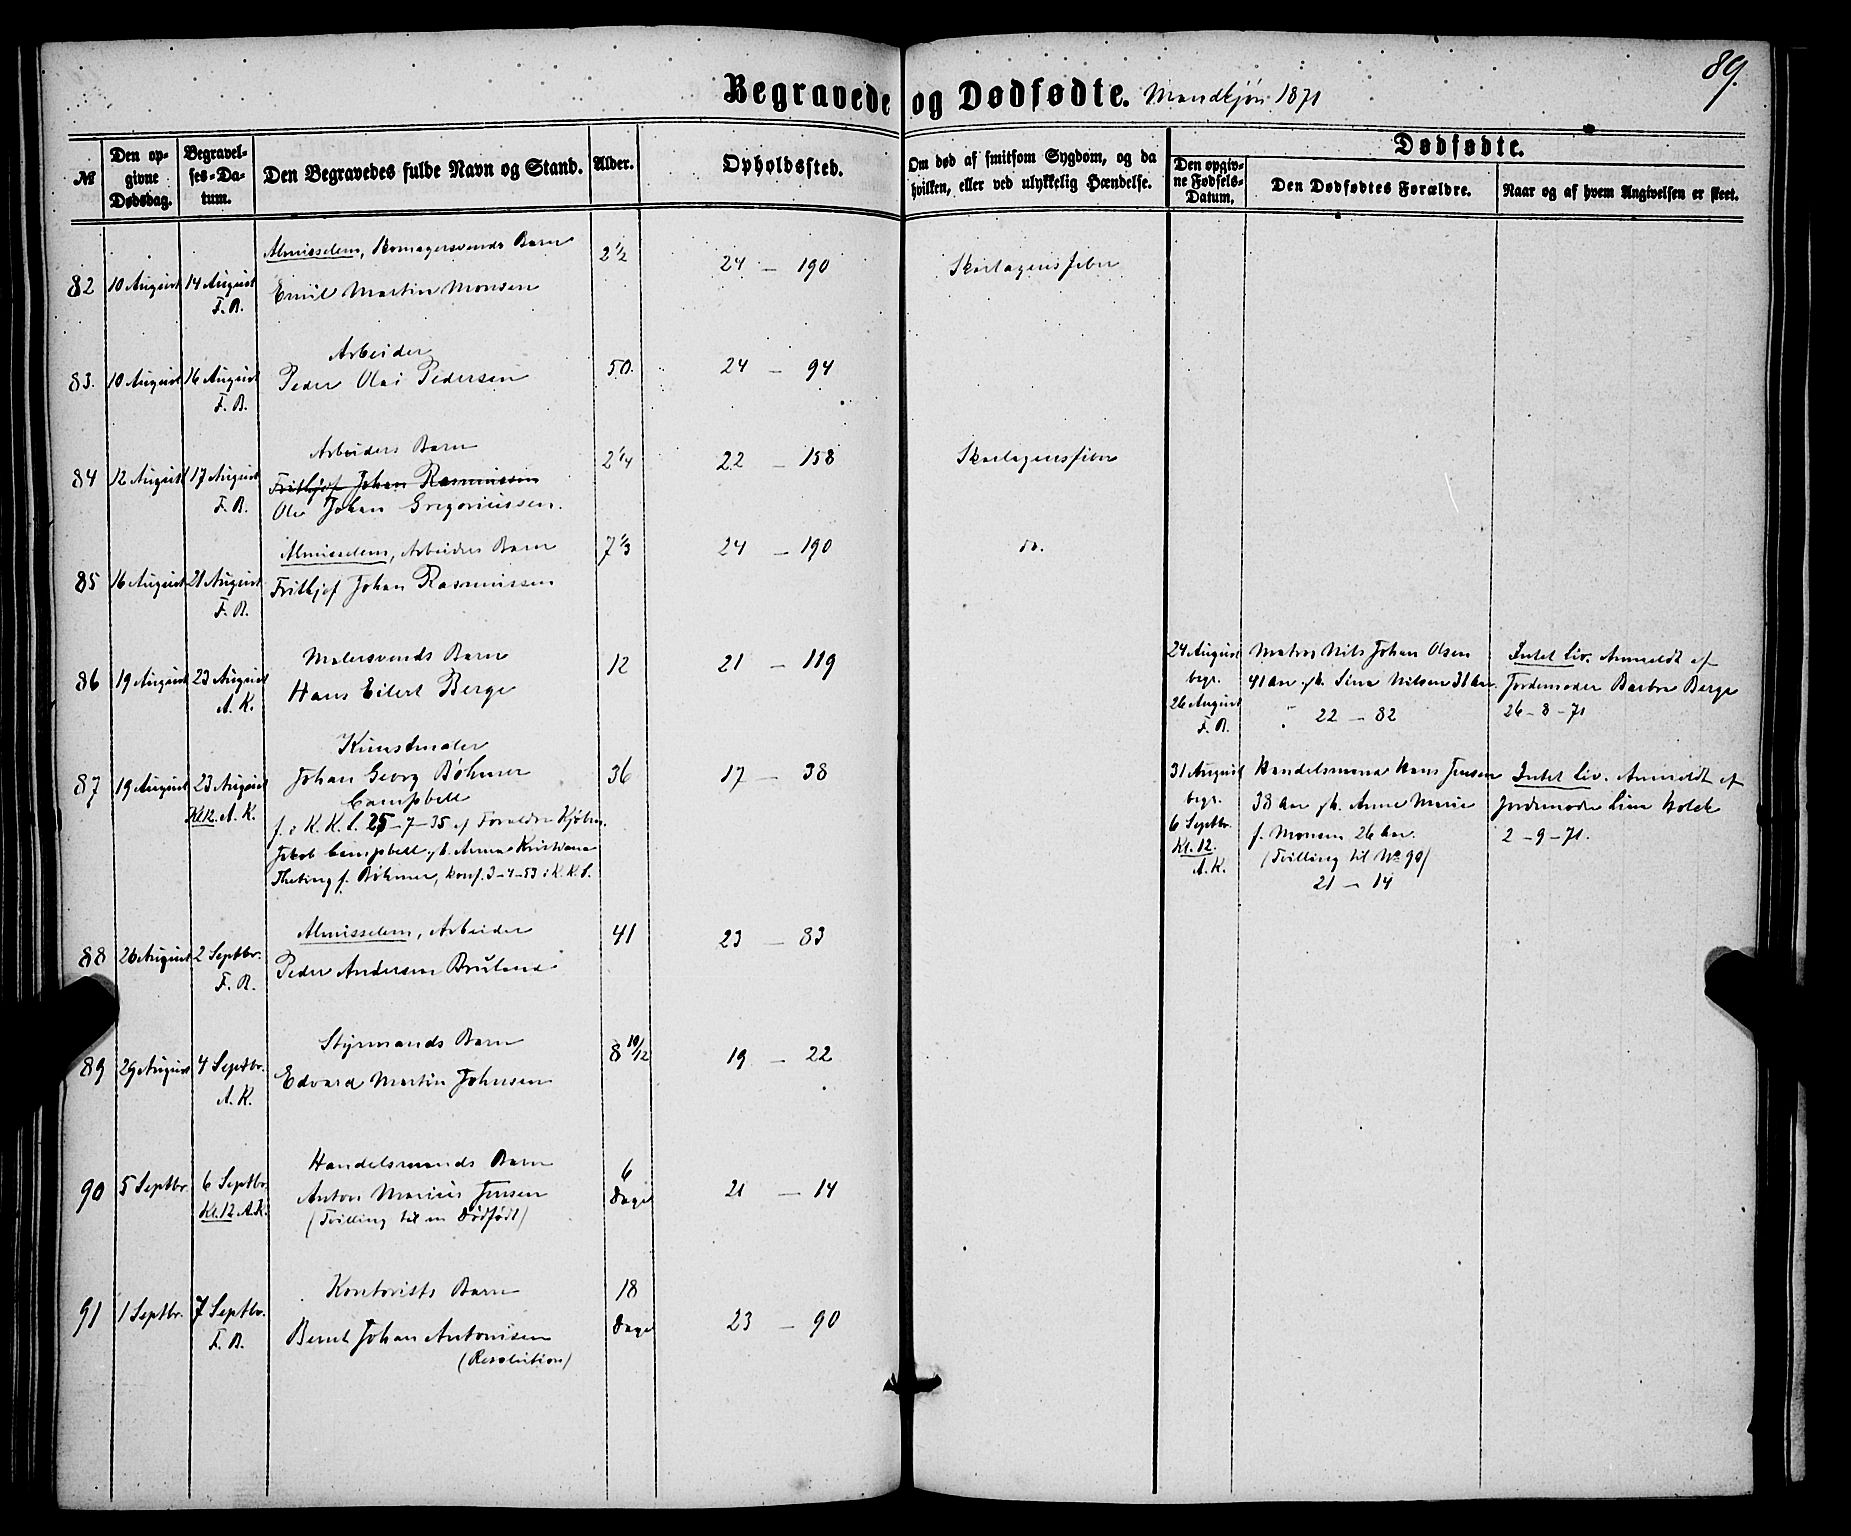 89.
Begravede og Dødfødte. Mandkjøn 1871
№
Den opgivne Dødsdag.
Begravelses-Datum.
Den Begravedes fulde Navn og Stand.
Alder.
Opholdssted.
Om død af smitsom Sygdom, og da hvilken, eller ved ulykkelig Hændelse.
Dødfødte.
Den opgivne Fødsels-Datum.
Den Dødfødtes Forældre.
Naar og af hvem Angivelsen er skeet.
Almisselem, Barn 2 1/2
82 10 August 14 August Emil Martin Monsen 24 – 190 Skarlagensfeber
F. B.
Arbeider
83. 10 August 16 August Peder Olai Pedersen 50. 24 – 94
F. B.
Arbeiders Barn
84 12 August 17 August Frithjof Johan Rasmussen 2 1/4 22 – 158 Skarlagensfeber
F. B. Ole Johan Gregoriussen.
Almisselem, Arbeiders Barn 7 1/3 24 – 190 do.
85 16 August 21 August Frithjof Johan Rasmussen
F. B.
Malersvends Barn
86 19 August 23 August Hans Eilert Berge 12 21 – 119
A. K.
Kunstmaler
87 19 August 23 August Johan Georg Bøhmer 36 17 – 38
Kl. 12. A. K. Campbell
f. i K. K. d. 25–7–35 af Forældre Kjøbm.
Jakob Campbell og h. Anna Kristiane
f. Bøhmer, konf. 3–4–53 i K. K.
Almisselem, Arbeider
88 26 August 2 Septbr. Peder Andersen 41 23 – 83
F. B.
Styrmands Barn
89 29 August 4 Septbr. Edvard Martin Johnsen 8 10/12 19 – 22
A. K.
Handelsmands Barn
90 5 Septbr. 6 Septbr. Anton Marius Jensen 6 Dage 21 – 14
Kl. 12 A. K. (Tvilling til en Dødfødt)
Kontorists Barn
91 1 Septbr. 7 Septbr. Bernt Johan Antonisen 18 Dage 23 – 90
F. B. (Resolution)
24 August Matros Nils Johan Olsen Intet Liv. Anmeldt af
begr. 41 Aar og h. Sina Nilsen 31 Aar. Jordemoder Barbra Berge
26 August 22 – 82 26–8–71
F. B.
31 August Handelsmand Hans Jensen Intet Liv. Anmeldt af
begr. 38 Aar og h. Anne Marie Jordemoder Lina Holck
6 Septbr. f. Monsen 26 Aar. 2–9–71.
Kl. 12. (Tvilling til No 90)
A. K. 21 – 14